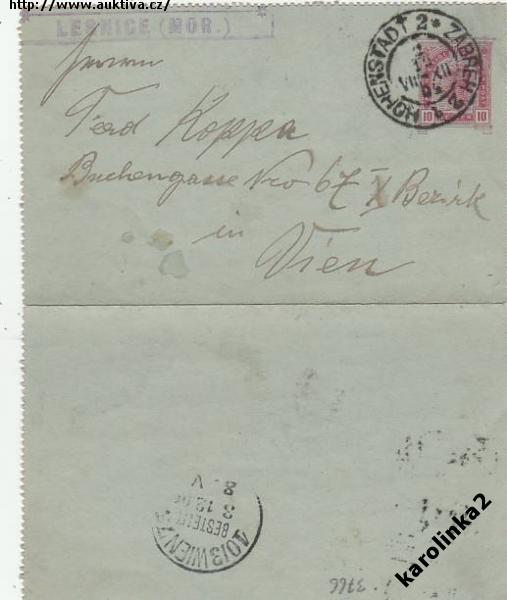 http://www.auktiva.cz/
LESNICE (MÖR.)
HOHENSTADT 2 * ZÁBŘEH 2
10 10
Herrn
Ferd Koppa
Buchengasse Nro 67 X Bezirk
in
Wien
40/3 WIEN
BESTELLT
8. V
karolinka2
3766